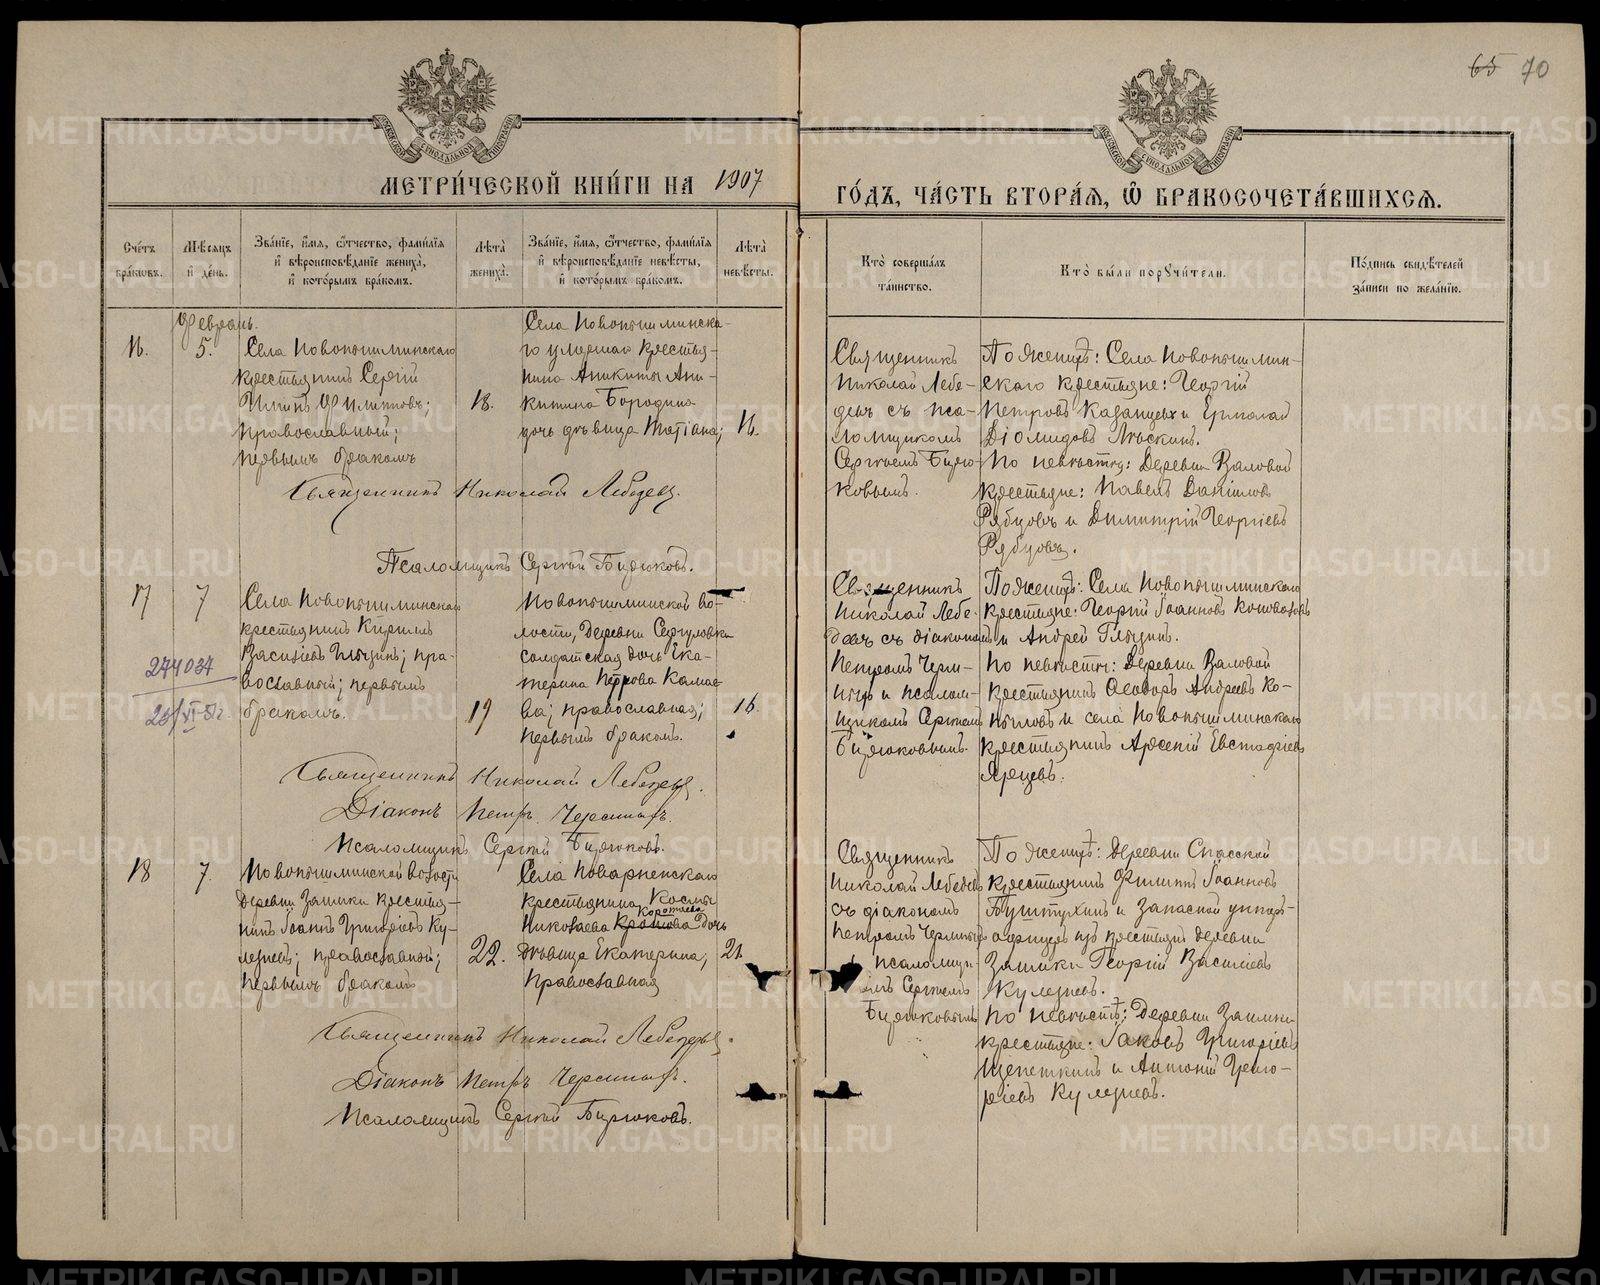 65 70
МЕТРИ́ЧЕСКОЙ КНИ́ГИ НА 1907
ГО́ДЪ, ЧА́СТЬ ВТОРА́Ѧ, Ѽ БРАКОСОЧЕТА́ВШИХСѦ.
Сче́тъ бра́ковъ.
Мѣ́сяцъ и́ де́нь.
Зва́нїе, и́мѧ, ѻ́тчество, фами́лїѧ
и҆ вѣроисповѣ́данїе жениха̀,
и҆ кото́рымъ бра́комъ.
Лѣ́та жениха̀.
Зва́нїе, и́мѧ, ѻ́тчество, фами́лїѧ
и҆ вѣроисповѣ́данїе невѣ́сты,
и҆ кото́рымъ бра́комъ.
Лѣ́та невѣ́сты.
Кто̀ соверша́лъ
та́инство.
Кто̀ бы́ли порꙋчи́тели.
По́дпись свидѣ́телей
за́писи по жела́нїю.
Февраль.
16.
5.
Села Новопышминскаго
крестьянинъ Сергій
Ильинъ Филипповъ;
православный;
первымъ бракомъ
18.
Села Новопышминска-
го умершаго крестья-
нина Аникиты Ани-
китина Бородина
дочь дѣвица Татіана;
16.
Священникъ
Николай Лебе-
девъ съ пса-
ломщикомъ
Сергѣемъ Бирю-
ковымъ.
По женихѣ: Села Новопышмин-
скаго крестьяне: Георгій
Петровъ Казанцевъ и Ермолай
Діомидовъ Лѣскинъ.
По невѣстѣ: Деревни Валовой
крестьяне: Павелъ Даніиловъ
Рябцовъ и Димитрій Георгіевъ
Рябцовъ.
Священникъ Николай Лебедевъ.
Псаломщикъ Сергѣй Бирюковъ.
17
7
Села Новопышминскаго
крестьянинъ Кириллъ
Васильевъ Глызинъ; пра-
вославный; первымъ
бракомъ.
274037
19
Новопышминской во-
лости, деревни Сергуловки
солдатская дочь Ека-
терина Петрова Камае-
ва; православная;
первымъ бракомъ.
16.
Священникъ
Николай Лебе-
девъ съ діакономъ
Петромъ Черм-
и псалом-
щикомъ Сергѣемъ
Бирюковымъ.
По женихѣ: Села Новопышминскаго
крестьяне: Георгій Іоанновъ Коноваловъ
и Андрей Глызинъ.
По невѣстѣ: Деревни Валовой
крестьянинъ Ѳеодоръ Андреевъ Ко-
пыловъ и села Новопышминскаго
крестьянинъ Арсеній Евстафіевъ
Ярцевъ.
Священникъ Николай Лебедевъ.
Діаконъ Петръ
Псаломщикъ Сергѣй Бирюковъ.
18
7.
Новопышминской волости
деревни Заимки крестья-
нинъ Іоаннъ Григоріевъ Ку-
лезневъ; православный;
первымъ бракомъ
22.
Села Поварненскаго
крестьянина Космы
Николаева Коротаева дочь
дѣвица Екатерина;
православная
21.
Священникъ
Николай Лебедевъ
съ діакономъ
Петромъ
псаломщи-
омъ Сергѣемъ
Бирюковымъ
По женихѣ: Деревни Спасской
крестьянинъ Филиппъ Іоанновъ
и запасной унтеръ-
офицеръ изъ крестьянъ деревни
Заимки Георгій Василіевъ
Кулезневъ.
По невѣстѣ: Деревни Заимки
крестьяне: Іаковъ Григоріевъ
Щепеткинъ и Антоній Григо-
ріевъ Кулезневъ.
Священникъ Николай Лебедевъ.
Діаконъ Петръ
Псаломщикъ Сергѣй Бирюковъ.
METRIKI.GASO-URAL.RU